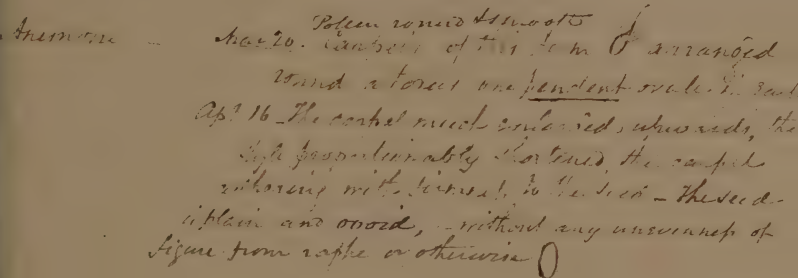 Pollen round & smooth
Anemone – Mar 20. Carpels of this form arranged
round a torus one pendent ovule in each
Apl 16 – The carpel much enlarged upwards, the
style proportionably shortened, the carpel
adhering with to the seed – The seed
is plain and ovoid, – without any unevenness of
figure from raphe or otherwise